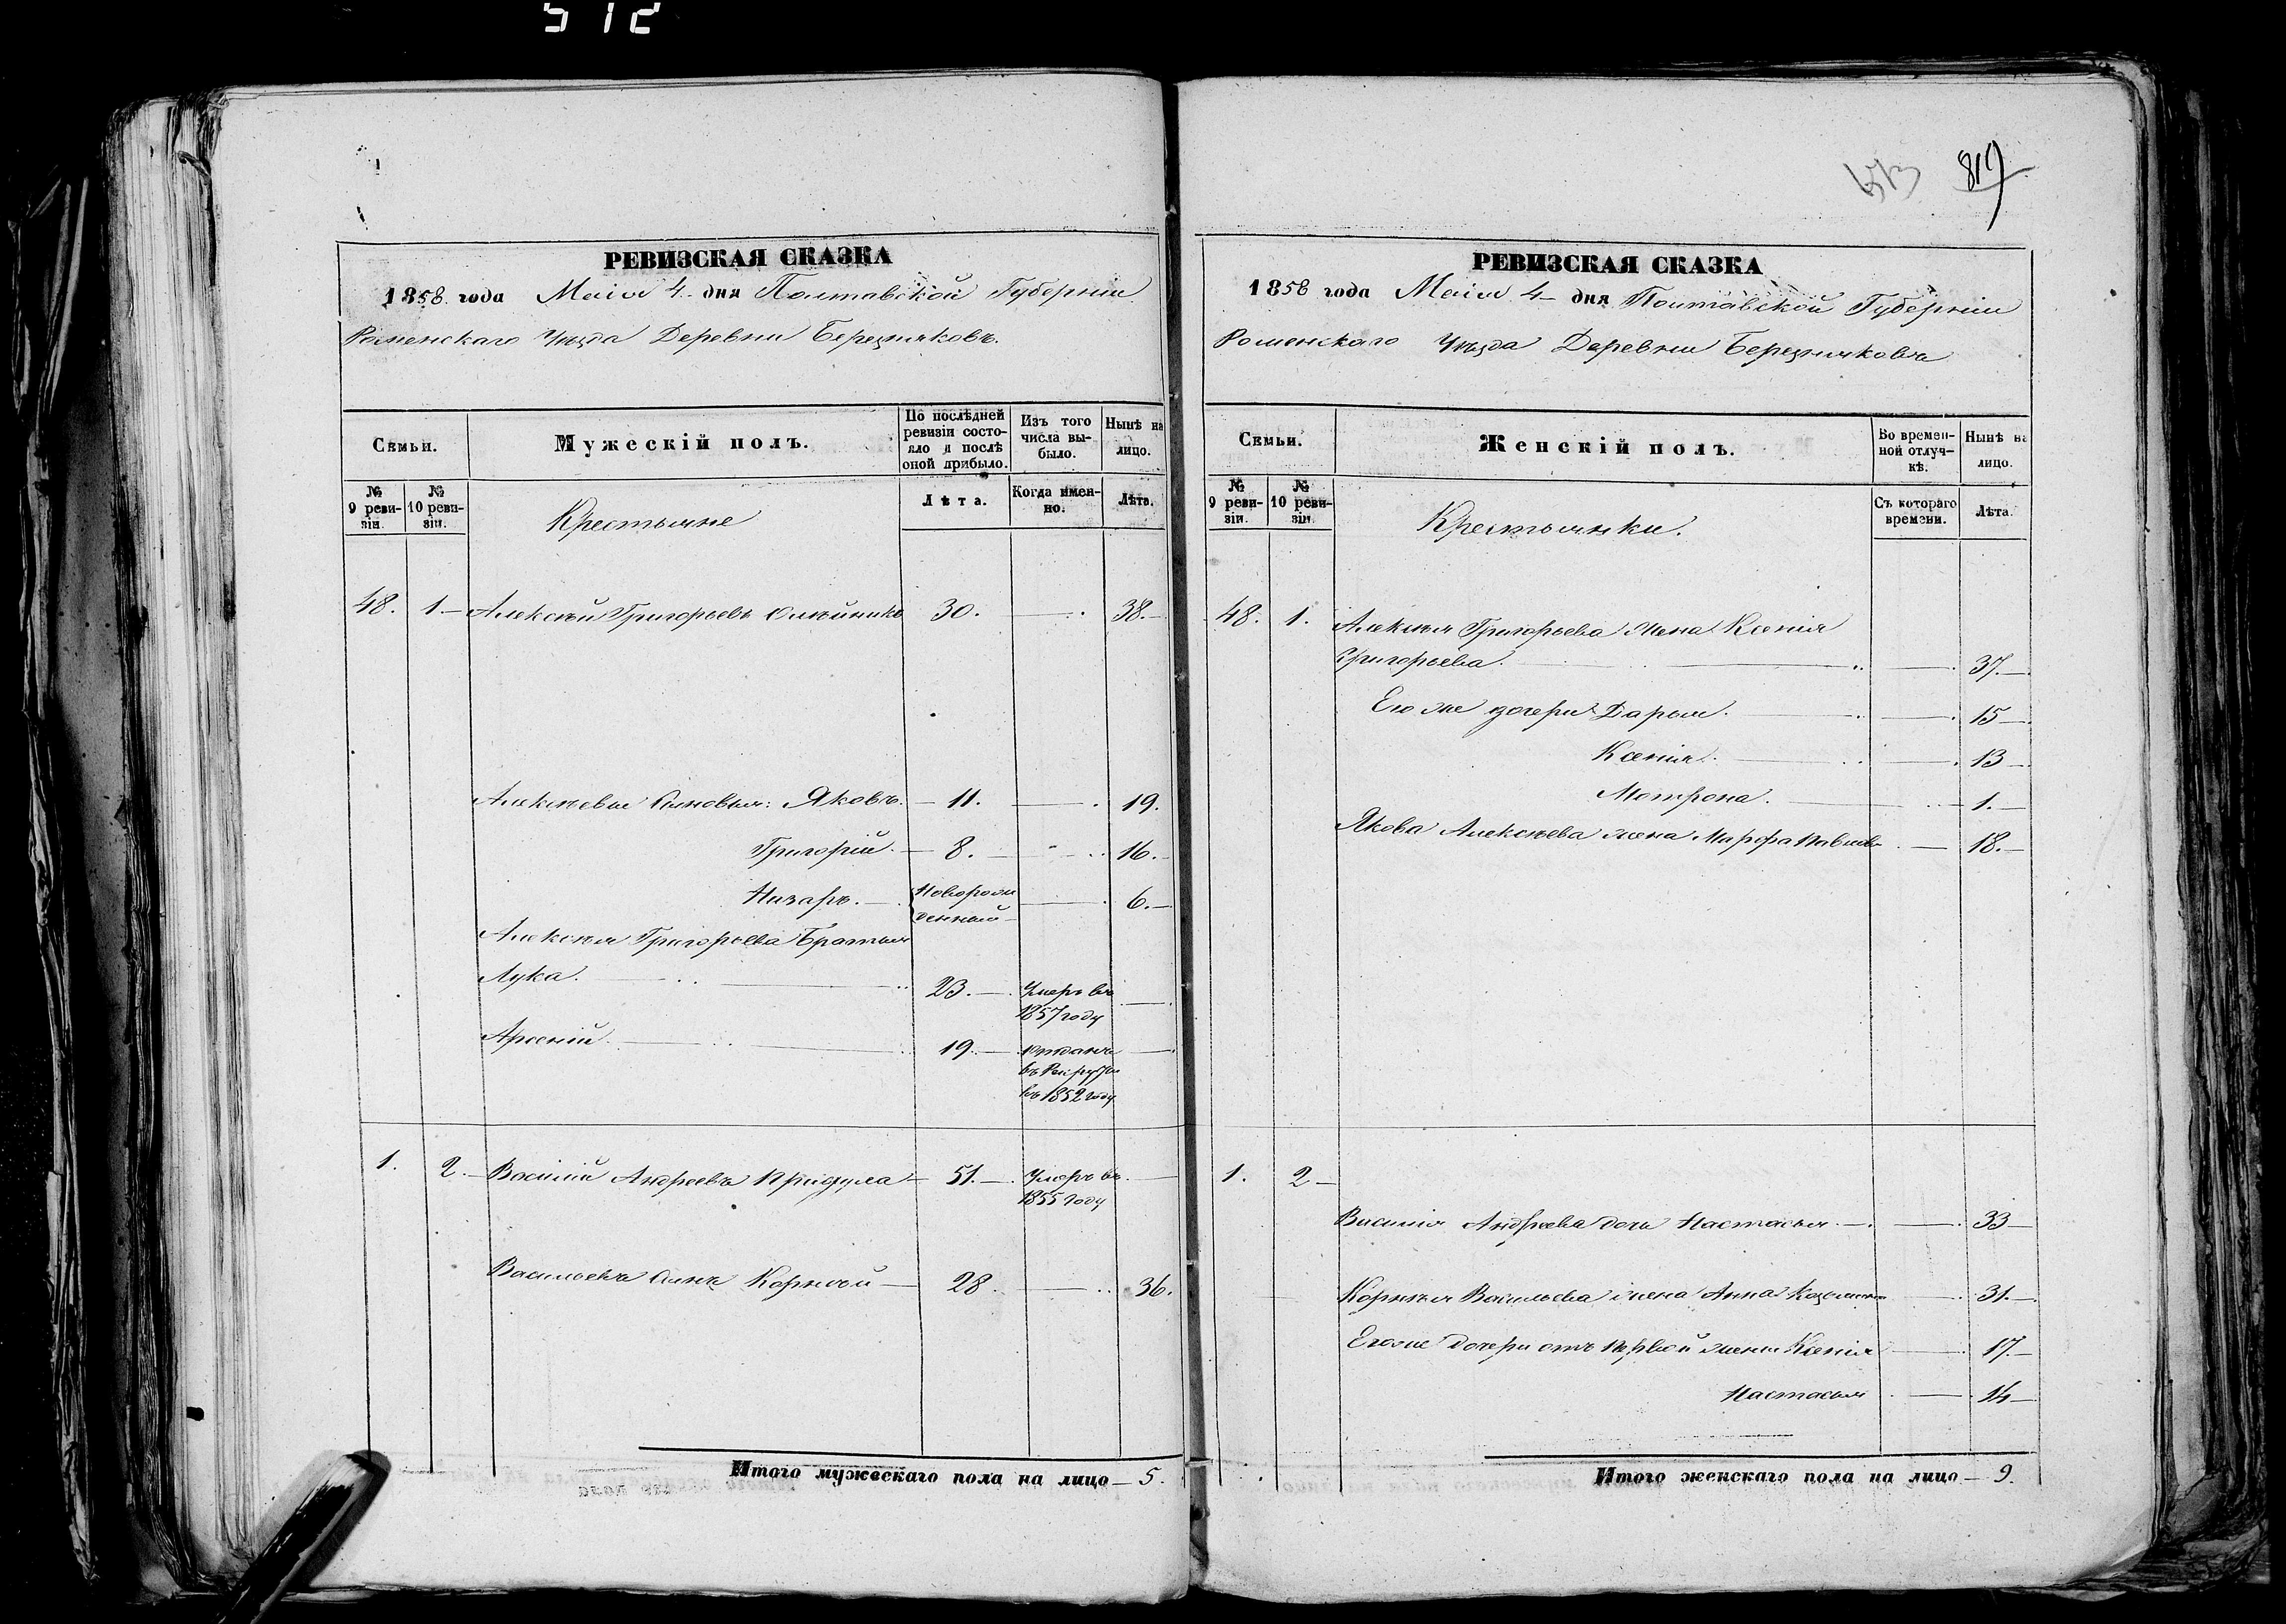 512
РЕВИЗСКАЯ СКАЗКА
1858 года Маія 4 дня Полтавской Губерніи
Роменскаго Уѣзда Деревни Березняковъ.
Семьи.
Мужескій полъ.
По послѣдней ревизіи состояло и послѣ оной прибыло.
Изъ того числа выбыло.
Нынѣ на лицо.
№ 9 ревизіи.
№ 10 ревизіи.
Крестьяне
Лѣта.
Когда именно.
Лѣта.
48. 1. Алексѣй Григорьевъ Олѣйникъ 30. 38.
Алексѣевы сыновья: Яковъ. 11. 19.
Григорій. 8. 16.
Назаръ. Новорож
денный 6.
Алексѣя Григорьева Братья
Лука. 23. Умеръ въ
1857 году
Арсеній 19. отданъ
въ Рекруты
въ 1852 году
1. 2. Василій Андреевъ Придула 51. Умеръ въ
1855 году
Васильевъ сынъ Корнѣй 28. 36.
Итого мужескаго пола на лицо 5.
513 819
РЕВИЗСКАЯ СКАЗКА
1858 года Маія 4 дня Полтавской Губерніи
Роменскаго Уѣзда Деревни Березняковъ
Семьи.
Женскій полъ.
Во временной отлучкѣ.
Нынѣ на лицо.
№ 9 ревизіи.
№ 10 ревизіи.
Крестьянки.
Съ котораго времени.
Лѣта.
48. 1. Алексѣя Григорьева жена Ксенія
Григорьева. 37.
Его же дочери Дарья. 15
Ксенія. 13
Мотрона. 1.
Якова Алексѣева жена Марфа Павлова 18.
1. 2
Василія Андреева дочь Настасья. 33
Корнѣя Васильева жена Анна 31.
Его же дочери отъ первой жены Ксенія 17.
Настасья 14
Итого женскаго пола на лицо 9.